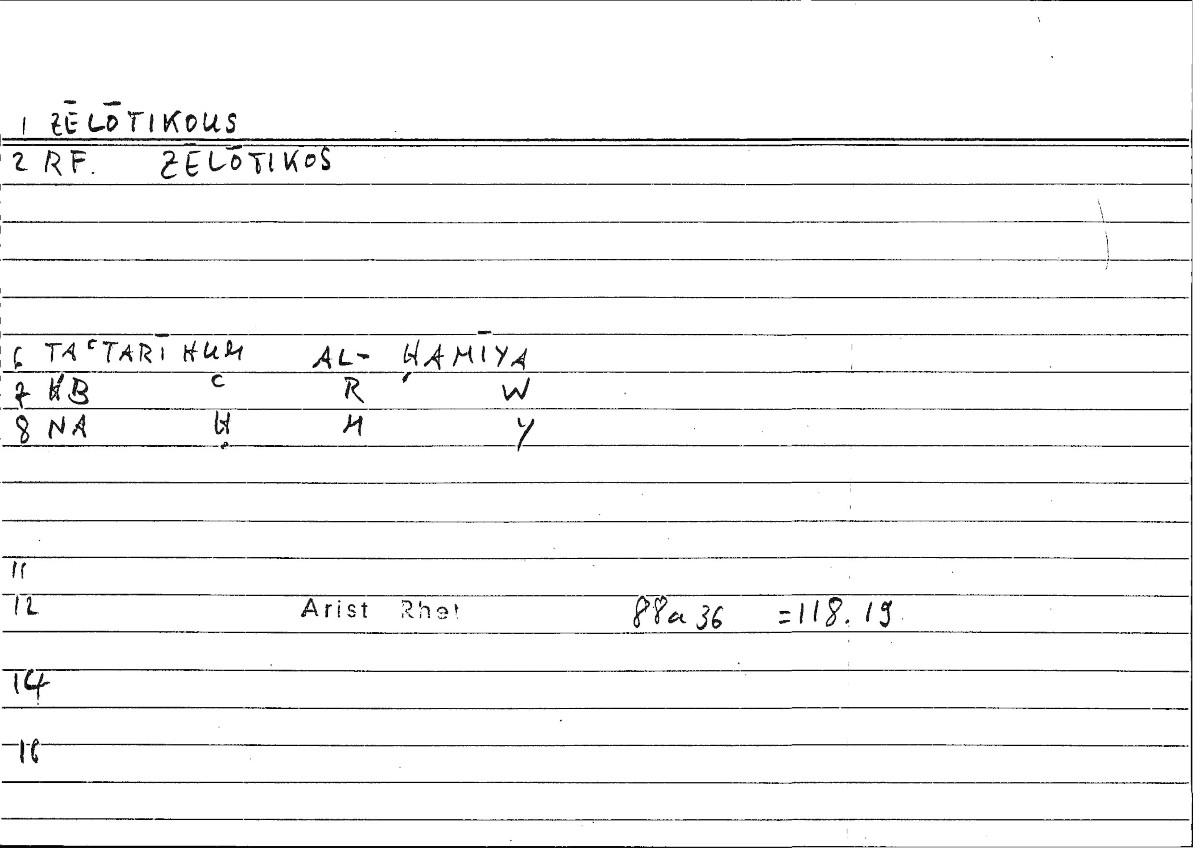 1 ZĒLŌTIKOUS
2 RF. ZĒLŌTIKOS
6 TAʿTARĪHUM AL-ḤAMĪYA
7 ḤB ʿ R W
8 NA Ḥ M Y
11
12 Arist Rhet 88a36 =118.19
14
16